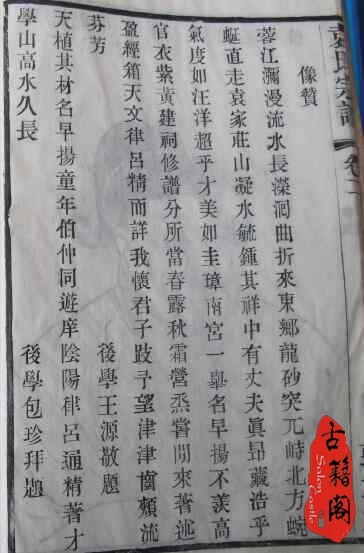 袁氏宗譜
卷一
像贊
蓉江瀰漫流水長濚洄曲折來東鄉龍砂突兀峙北方蜿
蜒直走袁家莊山凝水毓鍾其祥中有丈夫眞昂藏浩乎
氣度如汪洋超乎才美如圭璋南宮一舉名早揚不羨高
官衣紫黃建祠修譜分所當春露秋霜營烝嘗閒來著述
盈經箱天文律呂精而詳我懷君子跂予望津津齒頰流
芬芳
後學王源敬題
天植其材名早揚童年伯仲同遊庠陰陽律呂通精著才
學山高水久長
後學包珍拜題
古籍阁
Salon Castle